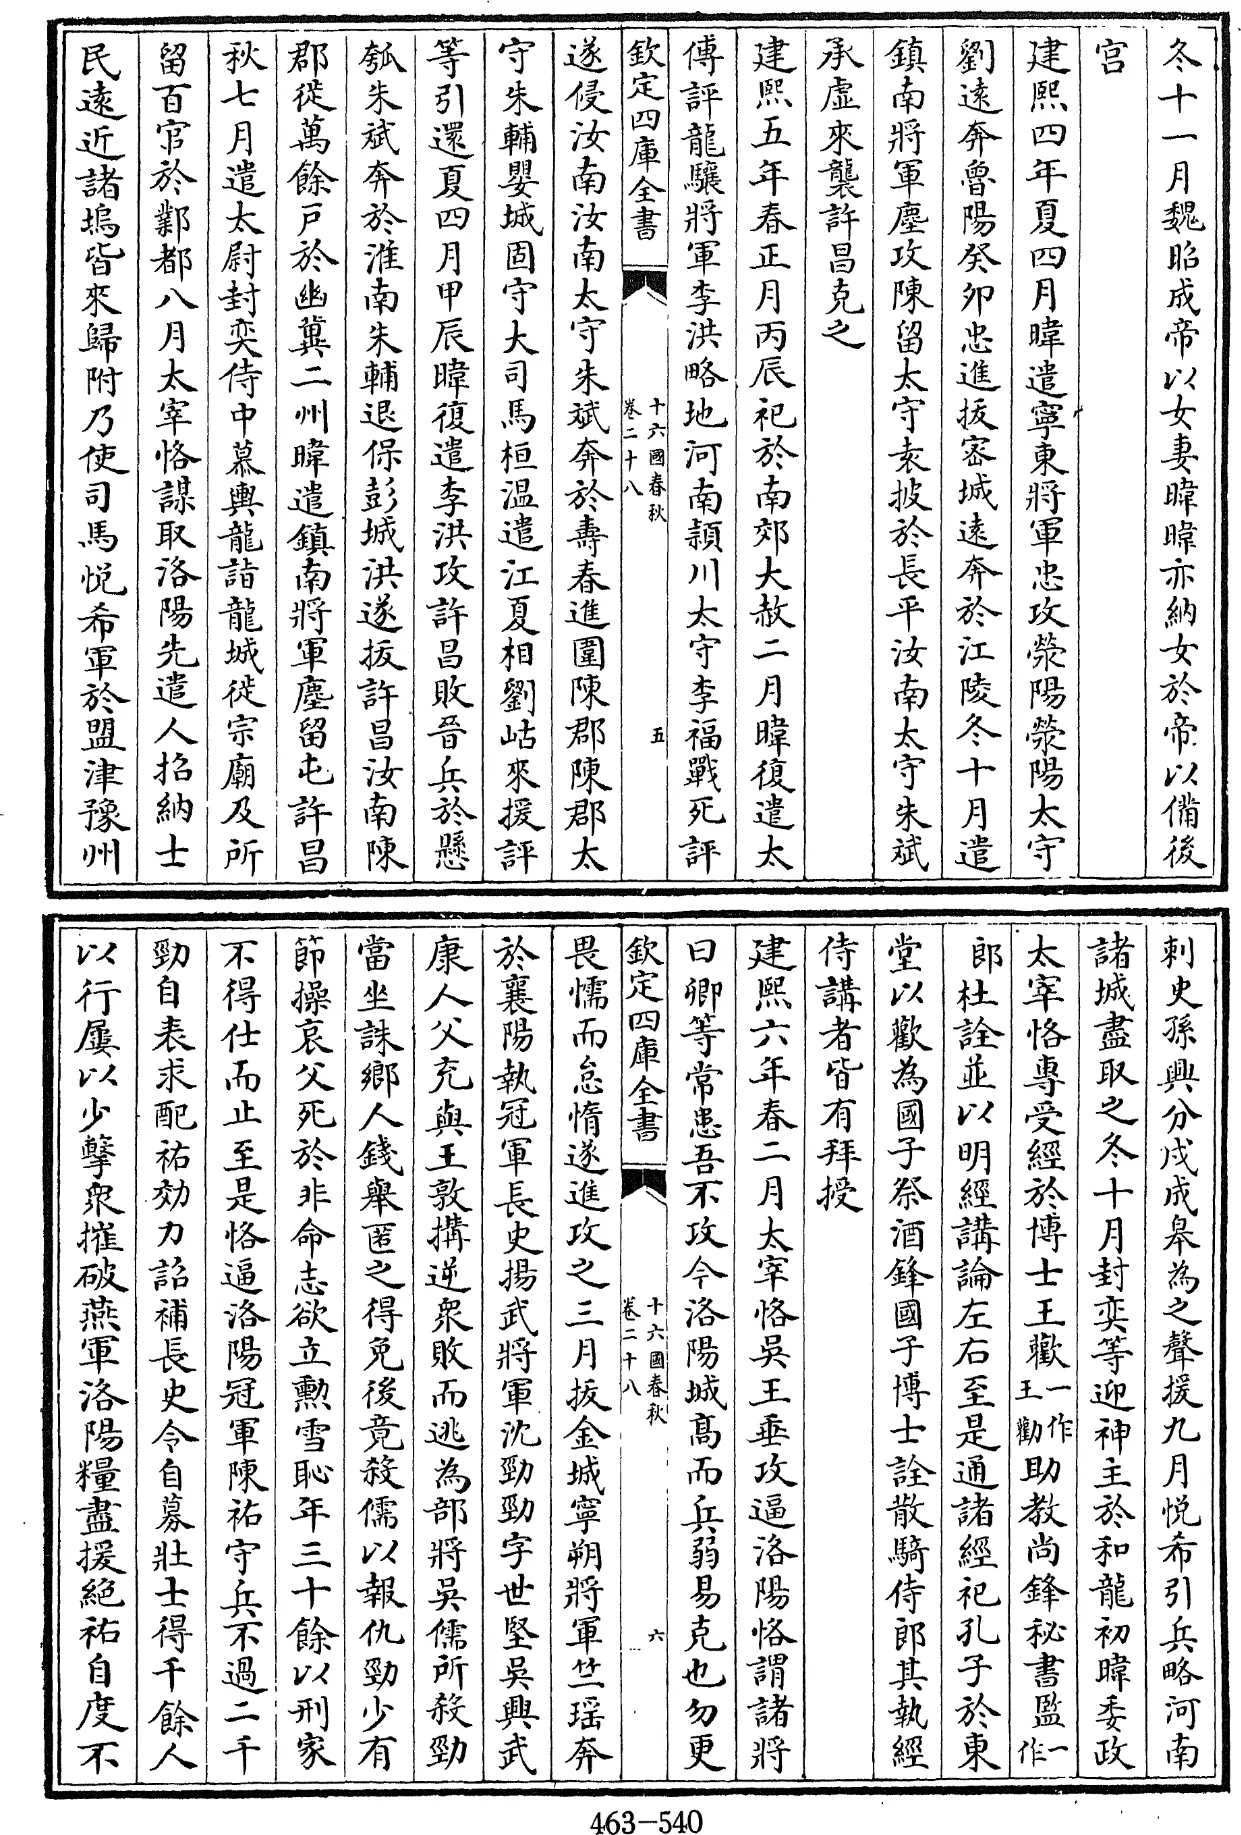 冬十一月魏昭成帝以女妻暐暐亦納女於帝以備後
宫
建熙四年夏四月暐遣寧東將軍忠攻滎陽滎陽太守
劉遠奔魯陽癸卯忠進拔密城遠奔於江陵冬十月遣
鎮南將軍塵攻陳留太守袁披於長平汝南太守朱斌
承虚來襲許昌克之
建熙五年春正月丙辰祀於南郊大赦二月暐復遣太
傅評龍驤將軍李洪略地河南潁川太守李福戰死評
欽定四庫全書
十六國春秋
卷二十八
五
遂侵汝南汝南太守朱斌奔於壽春進圍陳郡陳郡太
守朱輔嬰城固守大司馬桓温遣江夏相劉岵來援評
等引還夏四月甲辰暐復遣李洪攻許昌敗晉兵於懸
瓠朱斌奔於淮南朱輔退保彭城洪遂拔許昌汝南陳
郡徙萬餘戸於幽冀二州暐遣鎮南將軍塵留屯許昌
秋七月遣太尉封奕侍中慕輿龍詣龍城徙宗廟及所
留百官於鄴都八月太宰恪謀取洛陽先遣人招納士
民遠近諸塢皆來歸附乃使司馬悦希軍於盟津豫州
刺史孫興分戍成皋為之聲援九月悦希引兵略河南
諸城盡取之冬十月封奕等迎神主於和龍初暐委政
太宰恪專受經於博士王歡一作王勸助教尚鋒秘書監一作
郎杜詮並以明經講論左右至是通諸經祀孔子於東
堂以歡為國子祭酒鋒國子博士詮散騎侍郎其執經
侍講者皆有拜授
建熙六年春二月太宰恪吳王垂攻逼洛陽恪謂諸將
曰卿等常患吾不攻今洛陽城高而兵弱易克也勿更
欽定四庫全書
十六國春秋
卷二十八
六
畏懦而怠惰遂進攻之三月拔金城寧朔將軍竺瑶奔
於襄陽執冠軍長史揚武將軍沈勁勁字世堅吳興武
康人父充與王敦搆逆衆敗而逃為部將吳儒所殺勁
當坐誅鄉人錢舉匿之得免後竟殺儒以報仇勁少有
節操哀父死於非命志欲立勲雪恥年三十餘以刑家
不得仕而止至是恪逼洛陽冠軍陳祐守兵不過二千
勁自表求配祐効力詔補長史令自募壯士得千餘人
以行屢以少擊衆摧破燕軍洛陽糧盡援絶祐自度不
463-540